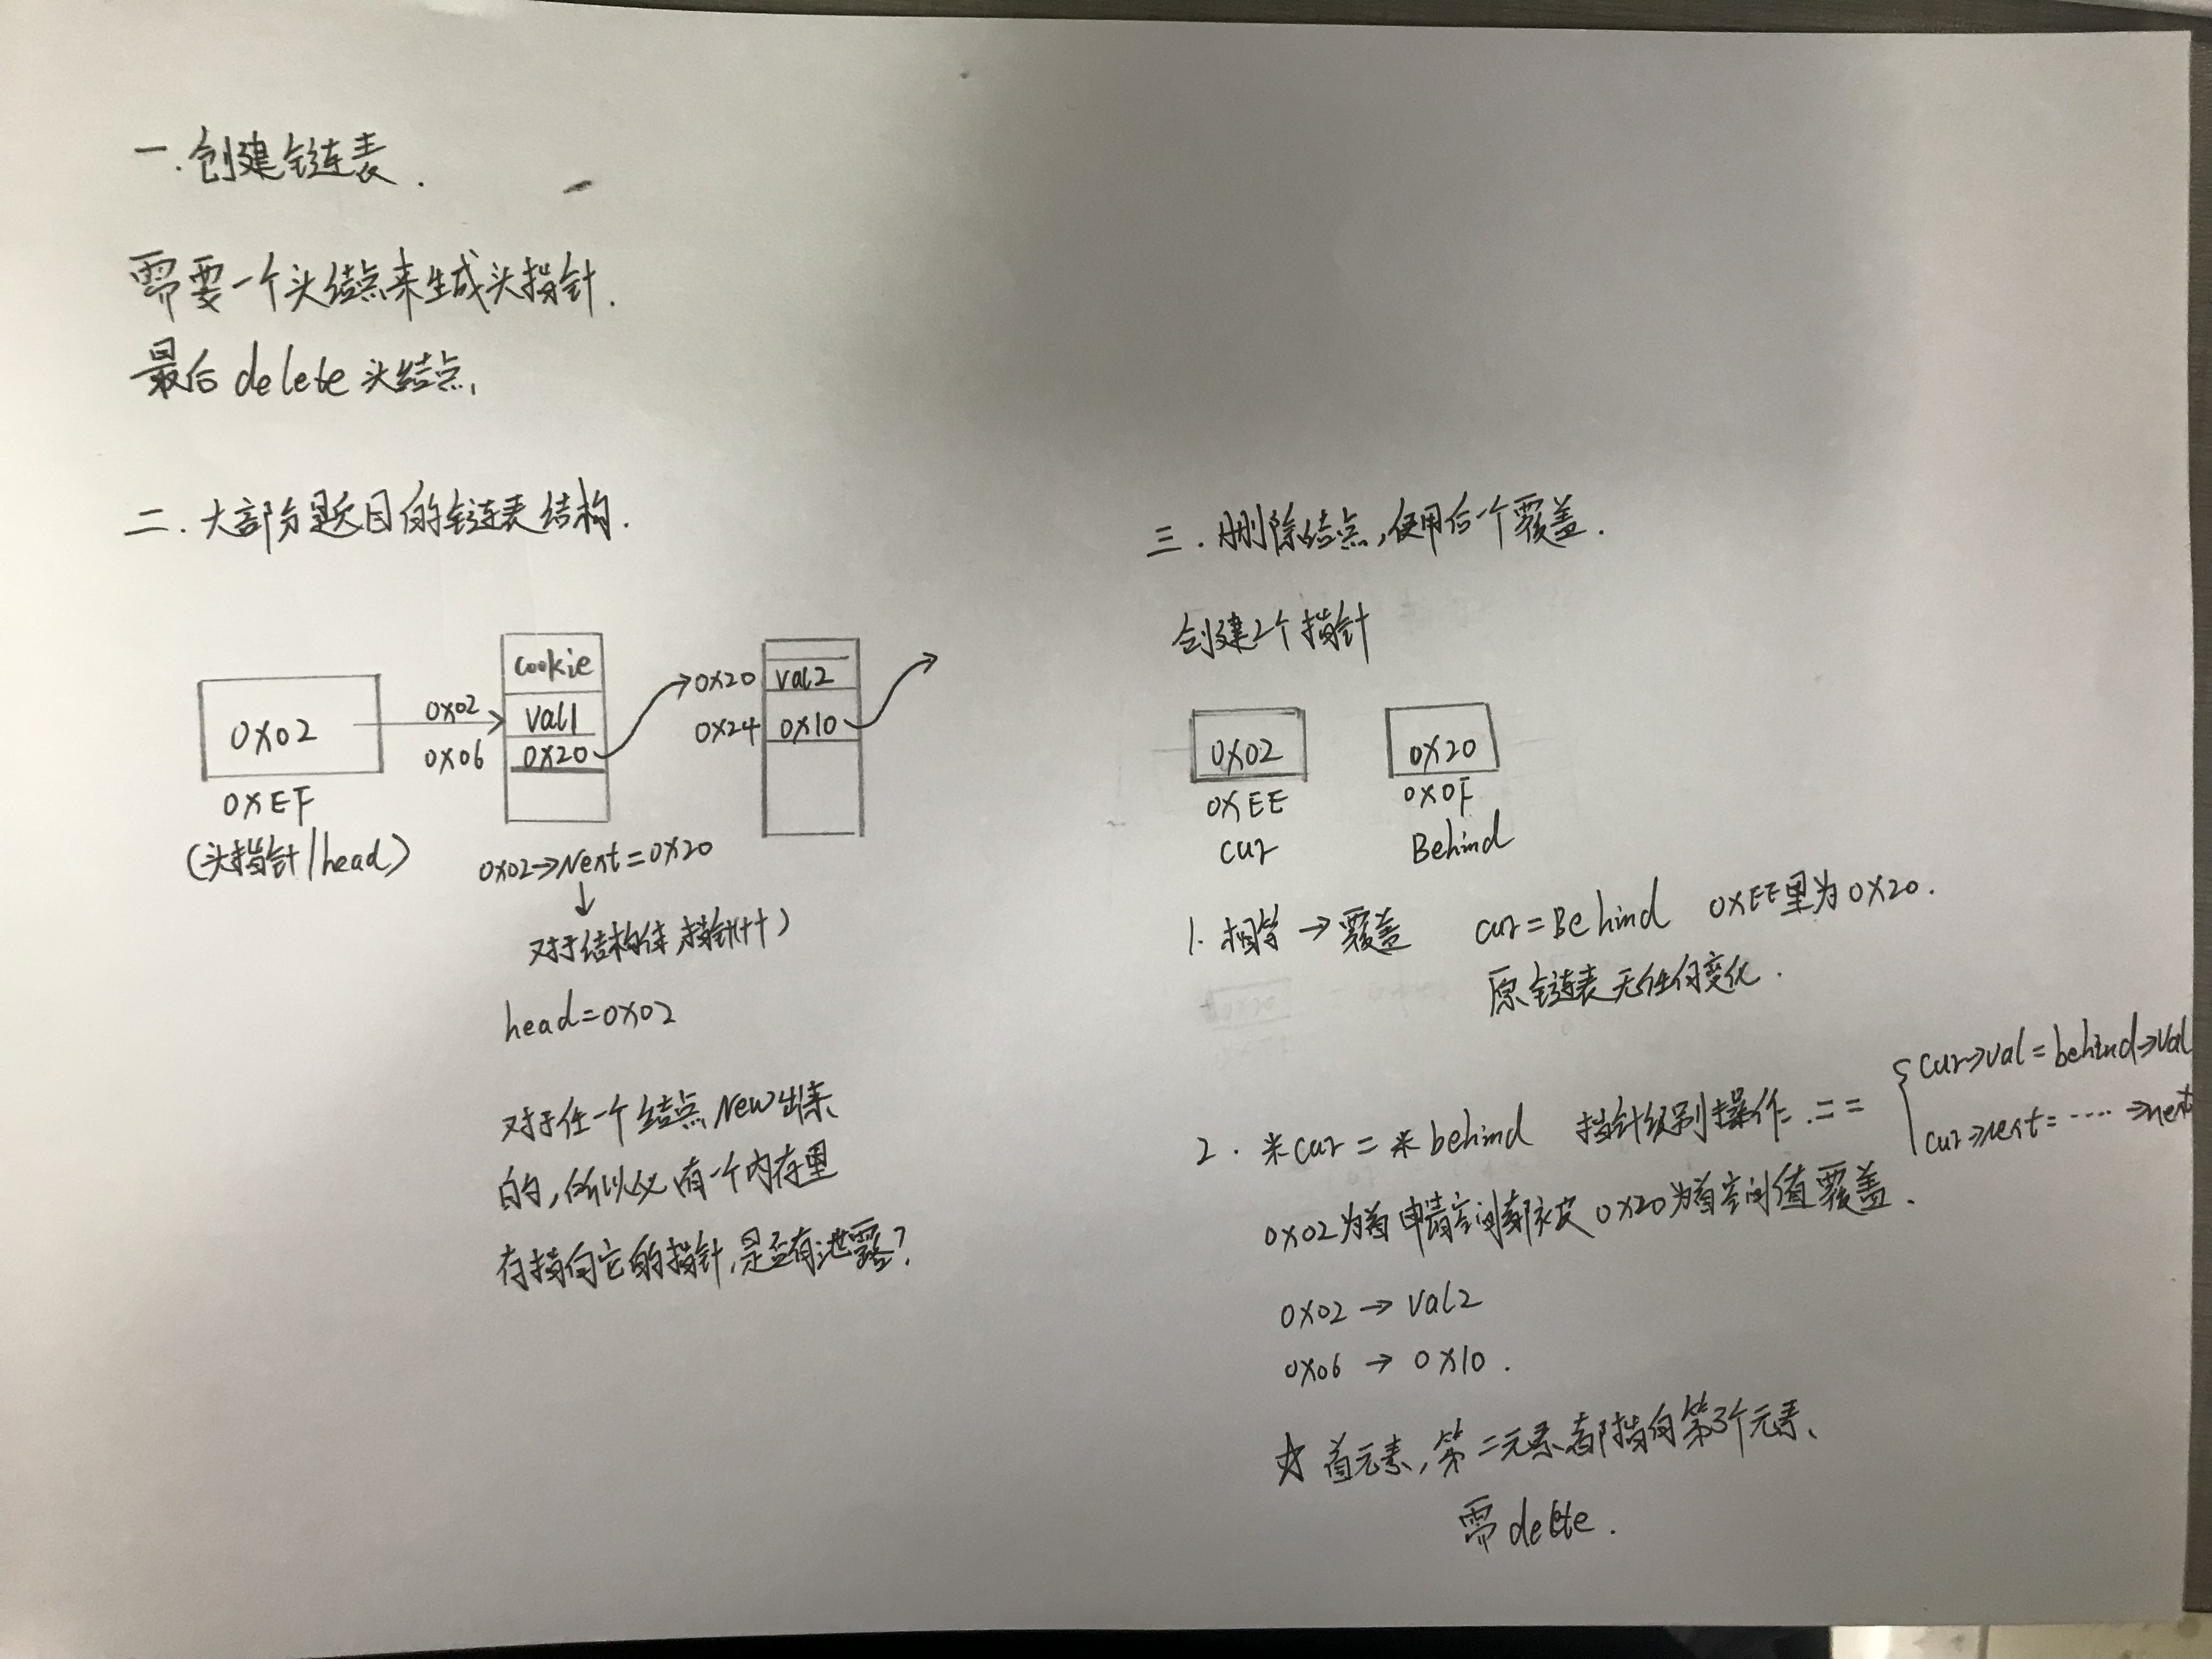 一.创建链表.
需要一个头结点来生成头指针.
最后delete头结点,
二.大部分题目的链表结构.
0x02
0xEF
(头指针/head)
0x02
0x06
cookie
val1
0x20
0x20
0x24
val2
0x10
0x02→Next=0x20
↓
对于结构体指针(++)
head=0x02
对于任一个结点New出来
的,所以必有一个内存里
存指向它的指针,是否有泄露?
三.删除结点,使用后一个覆盖.
创建2个指针
0x02
0xEE
cur
0x20
0x0F
Behind
1.相等→覆盖 cur=Behind 0xEE里为0x20.
原链表无任何变化.
2.*cur=*behind 指针级别操作.==
cur→val=behind→val
cur→next=....→next
0x02为首申请空间都被0x20为首空间值覆盖.
0x02→val2
0x06→0x10.
☆首元素,第二元素都指向第3个元素、
需delete.